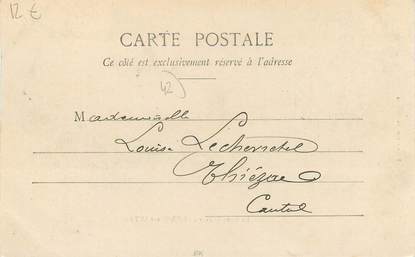 12 €
CARTE POSTALE
Ce côté est exclusivement réservé à l'adresse
42
Mademoiselle
Louise
Thiézac
Cantal